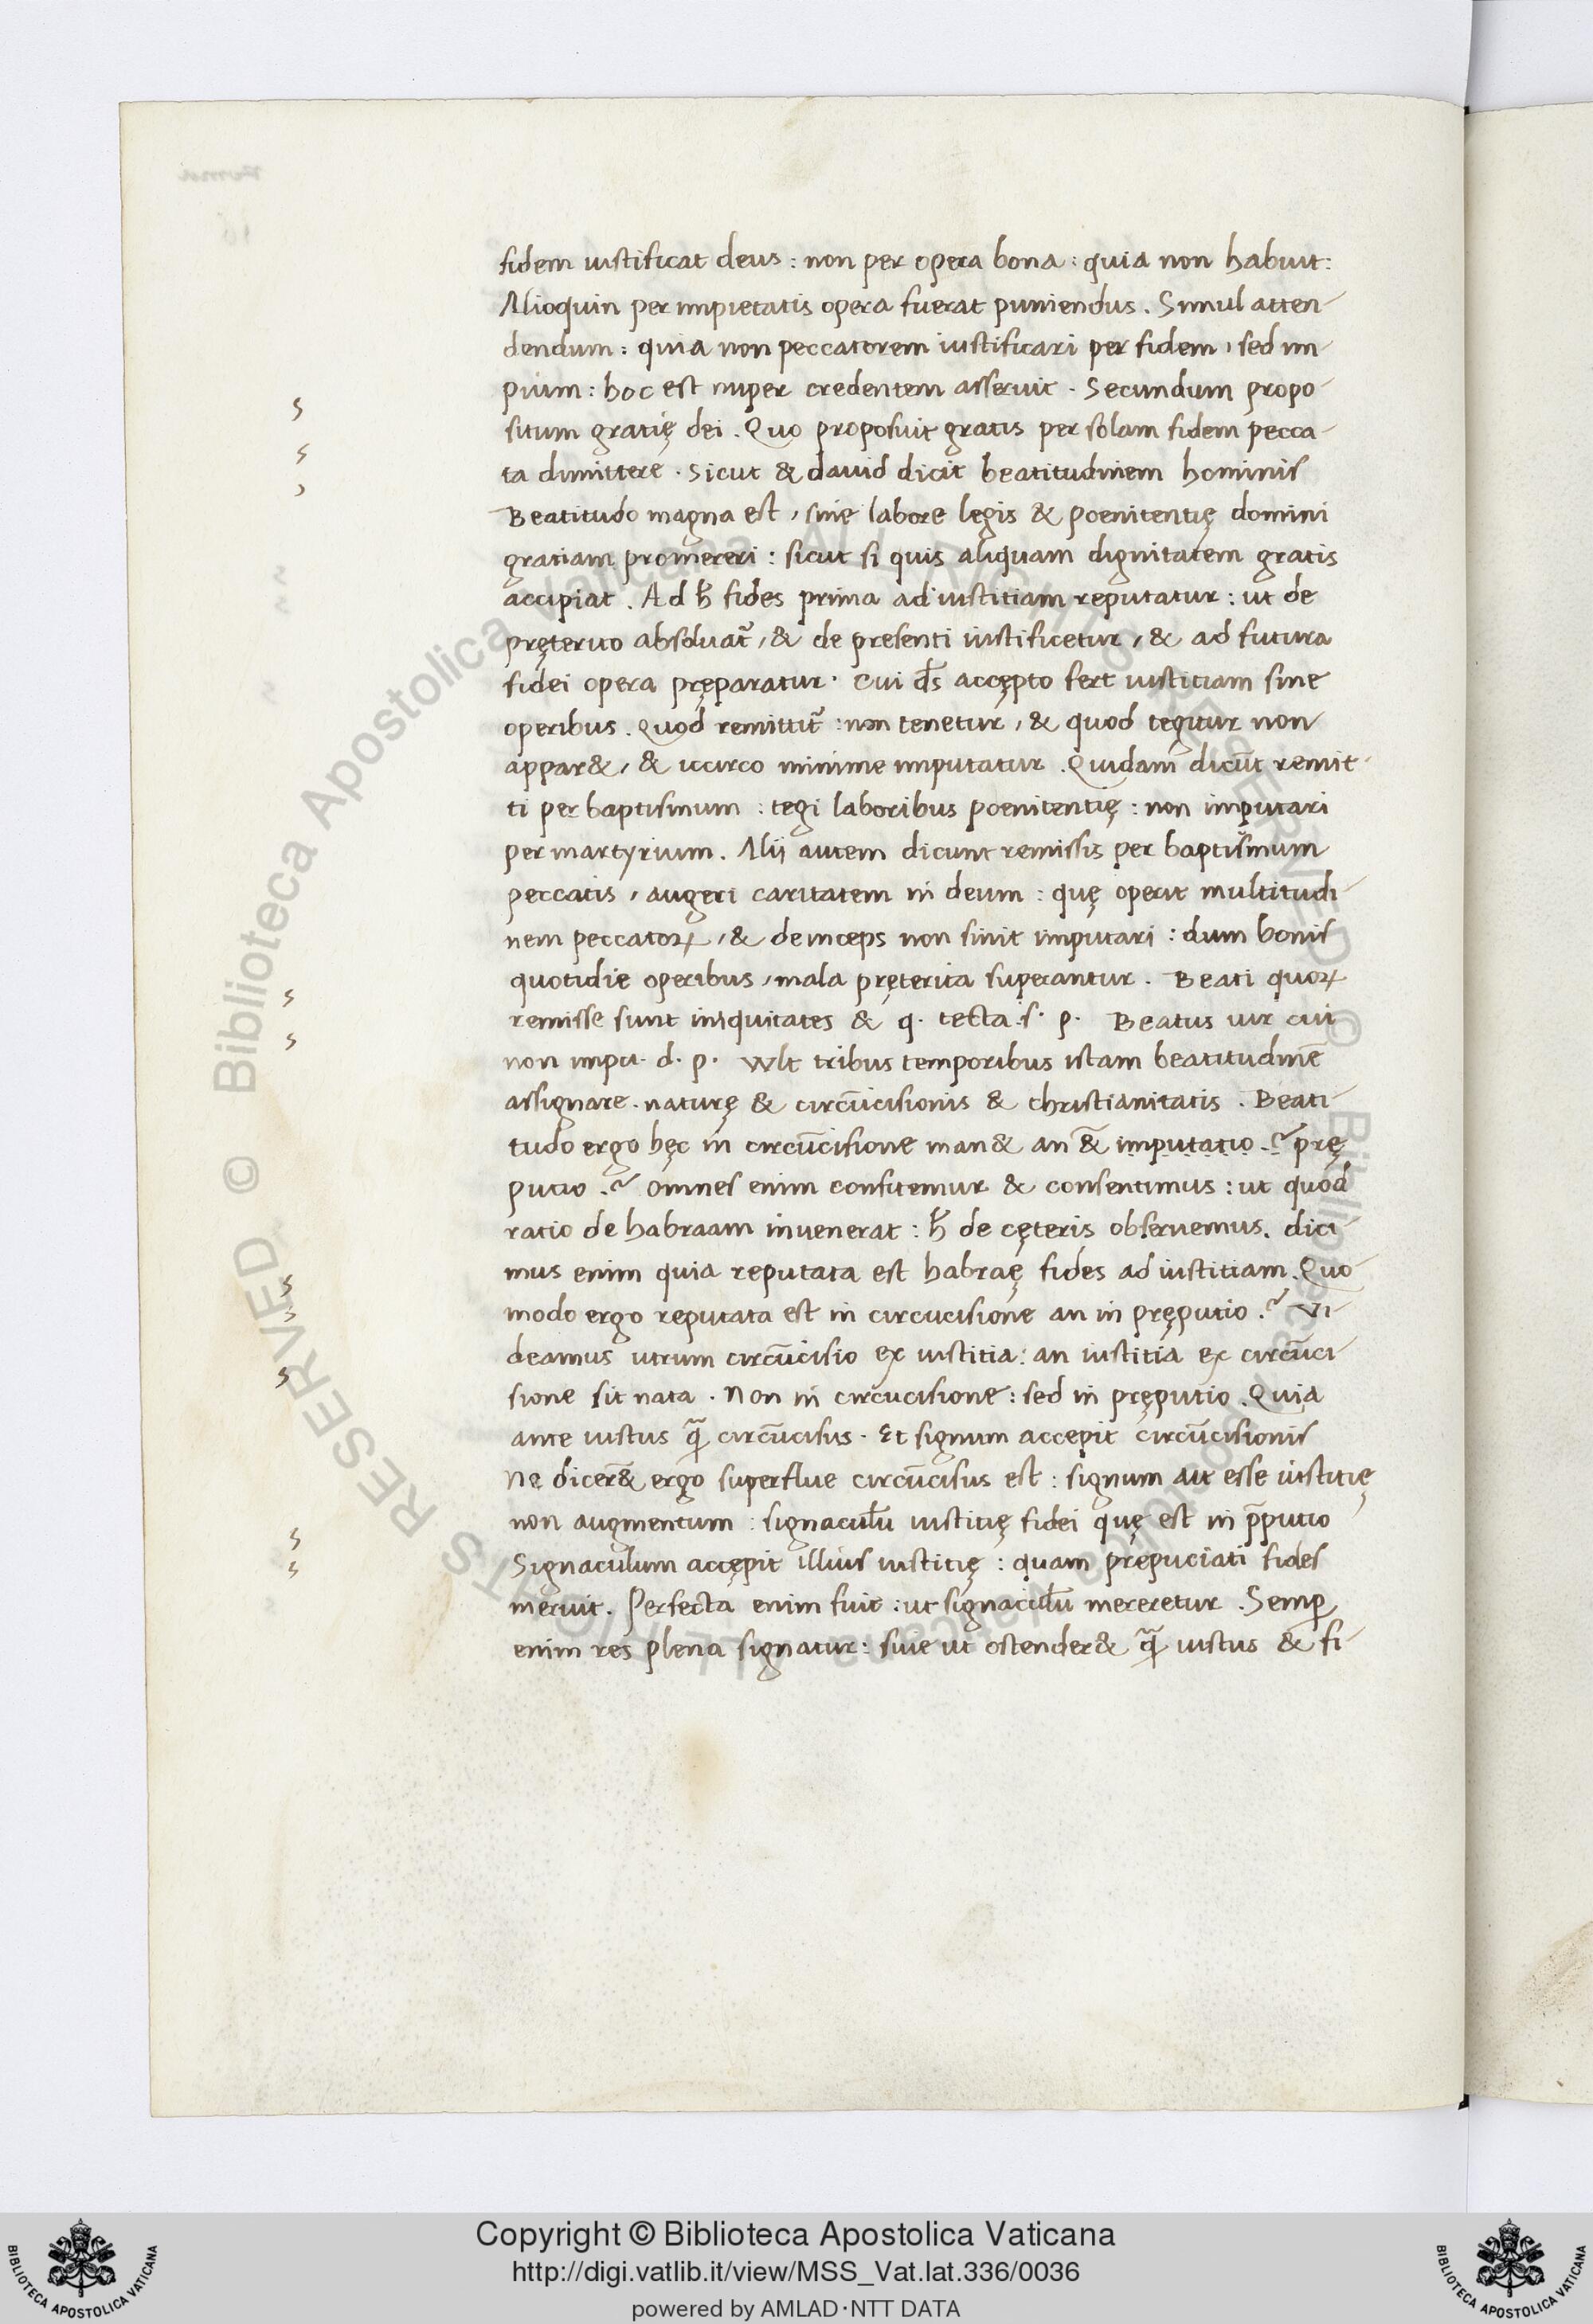 fidem iustificat deus : non per opera bona : quia non habuit :
Alioquin per impietatis opera fuerat puniendus . Simul atten-
dendum : quia non peccatorem iustificari per fidem , sed im-
pium : hoc est nuper credentem asseruit . Secundum propo-
situm gratię dei . Quo proposuit gratis per solam fidem pecca-
ta dimittere . Sicut & dauid dicit beatitudinem hominis
Beatitudo magna est , sine labore legis & poenitentię domini
gratiam promereri : sicut si quis aliquam dignitatem gratis
accipiat . Ad h̄ fides prima ad iustitiam reputatur : ut de
pręterito absoluat᷑ , & de presenti iustificetur , & ad futura
fidei opera pręparatur . Cui d̄s accępto fert iustitiam sine
operibus . Quod remittit᷑ : non tenetur , & quod tegitur non
appar& , & iccirco minime imputatur . Quidam dicūt remit-
ti per baptismum : tegi laboribus poenitentię : non imputari
per martyrium . Alij autem dicunt remissis per baptismum
peccatis , augeri caritatem in deum : quę operit multitudi-
nem peccatoꝝ , & deinceps non sinit imputari : dum bonis
quotidie operibus , mala pręterita superantur . Beati quoꝝ
remisse sunt iniquitates & q . tecta . s . p . Beatus uir cui
non impu . d . p . Wlt tribus temporibus istam beatitudinē
assignare . naturę & circūcisionis & christianitatis . Beati-
tudo ergo hęc in circūcisione man& an &̄ imputatio .? prę
putio .? Omnes enim confitemur & consentimus : ut quod
ratio de habraam inuenerat : h̄ de cęteris obseruemus . dici-
mus enim quia reputata est habraę fides ad iustitiam . Quo-
modo ergo reputata est in circucisione an in pręputio .? Vi-
deamus utrum circūcisio ex iustitia : an iustitia ex circūci-
sione sit nata . Non in circucisione : sed in pręputio . Quia
ante iustus ꝗ̄ circūcisus . Et signum accepit circūcisionis
Ne dicer&̄ ergo superflue circūcisus est : signum ait esse iustitię
non augmentum : signacul̄u iustitię fidei quę est in p̄putio
Signaculum accępit illius iustitię : quam prępuciati fides
meruit . Perfecta enim fuit : ut signacul̄u mereretur . Semꝑ
enim res plena signatur : siue ut ostender& ꝗ̄ iustus & fi-
Copyright © Biblioteca Apostolica Vaticana
http://digi.vatlib.it/view/MSS_Vat.lat.336/0036
powered by AMLAD·NTT DATA